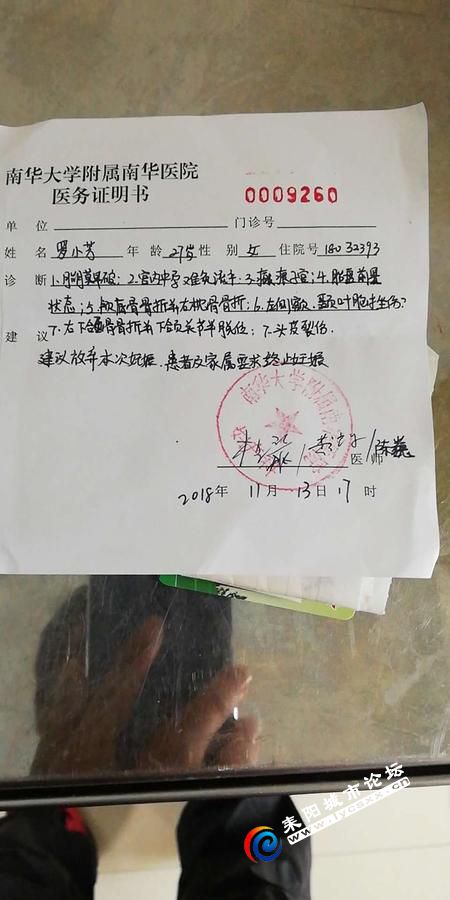 南华大学附属南华医院
医务证明书
0009260
单 位 门诊号
姓 名 罗小芳 年 龄 27岁 性 别 女 住院号 1832393
诊 断 1.胎膜早破; 2.宫内中孕 难免流产; 3.瘢痕子宫; 4.胎盘前置
状态; 5.颅底骨骨折并右枕骨骨折; 6.左侧额、颞叶脑挫伤?
7.右下颌骨骨折并下颌关节半脱位; 7.头皮裂伤.
建 议
建议放弃本次妊娠.患者及家属要求终止妊娠
南华大学附属南华医院
医师 陈巍
2018年 11月 13日 17时
耒阳城市论坛
www.lycsxx.cn